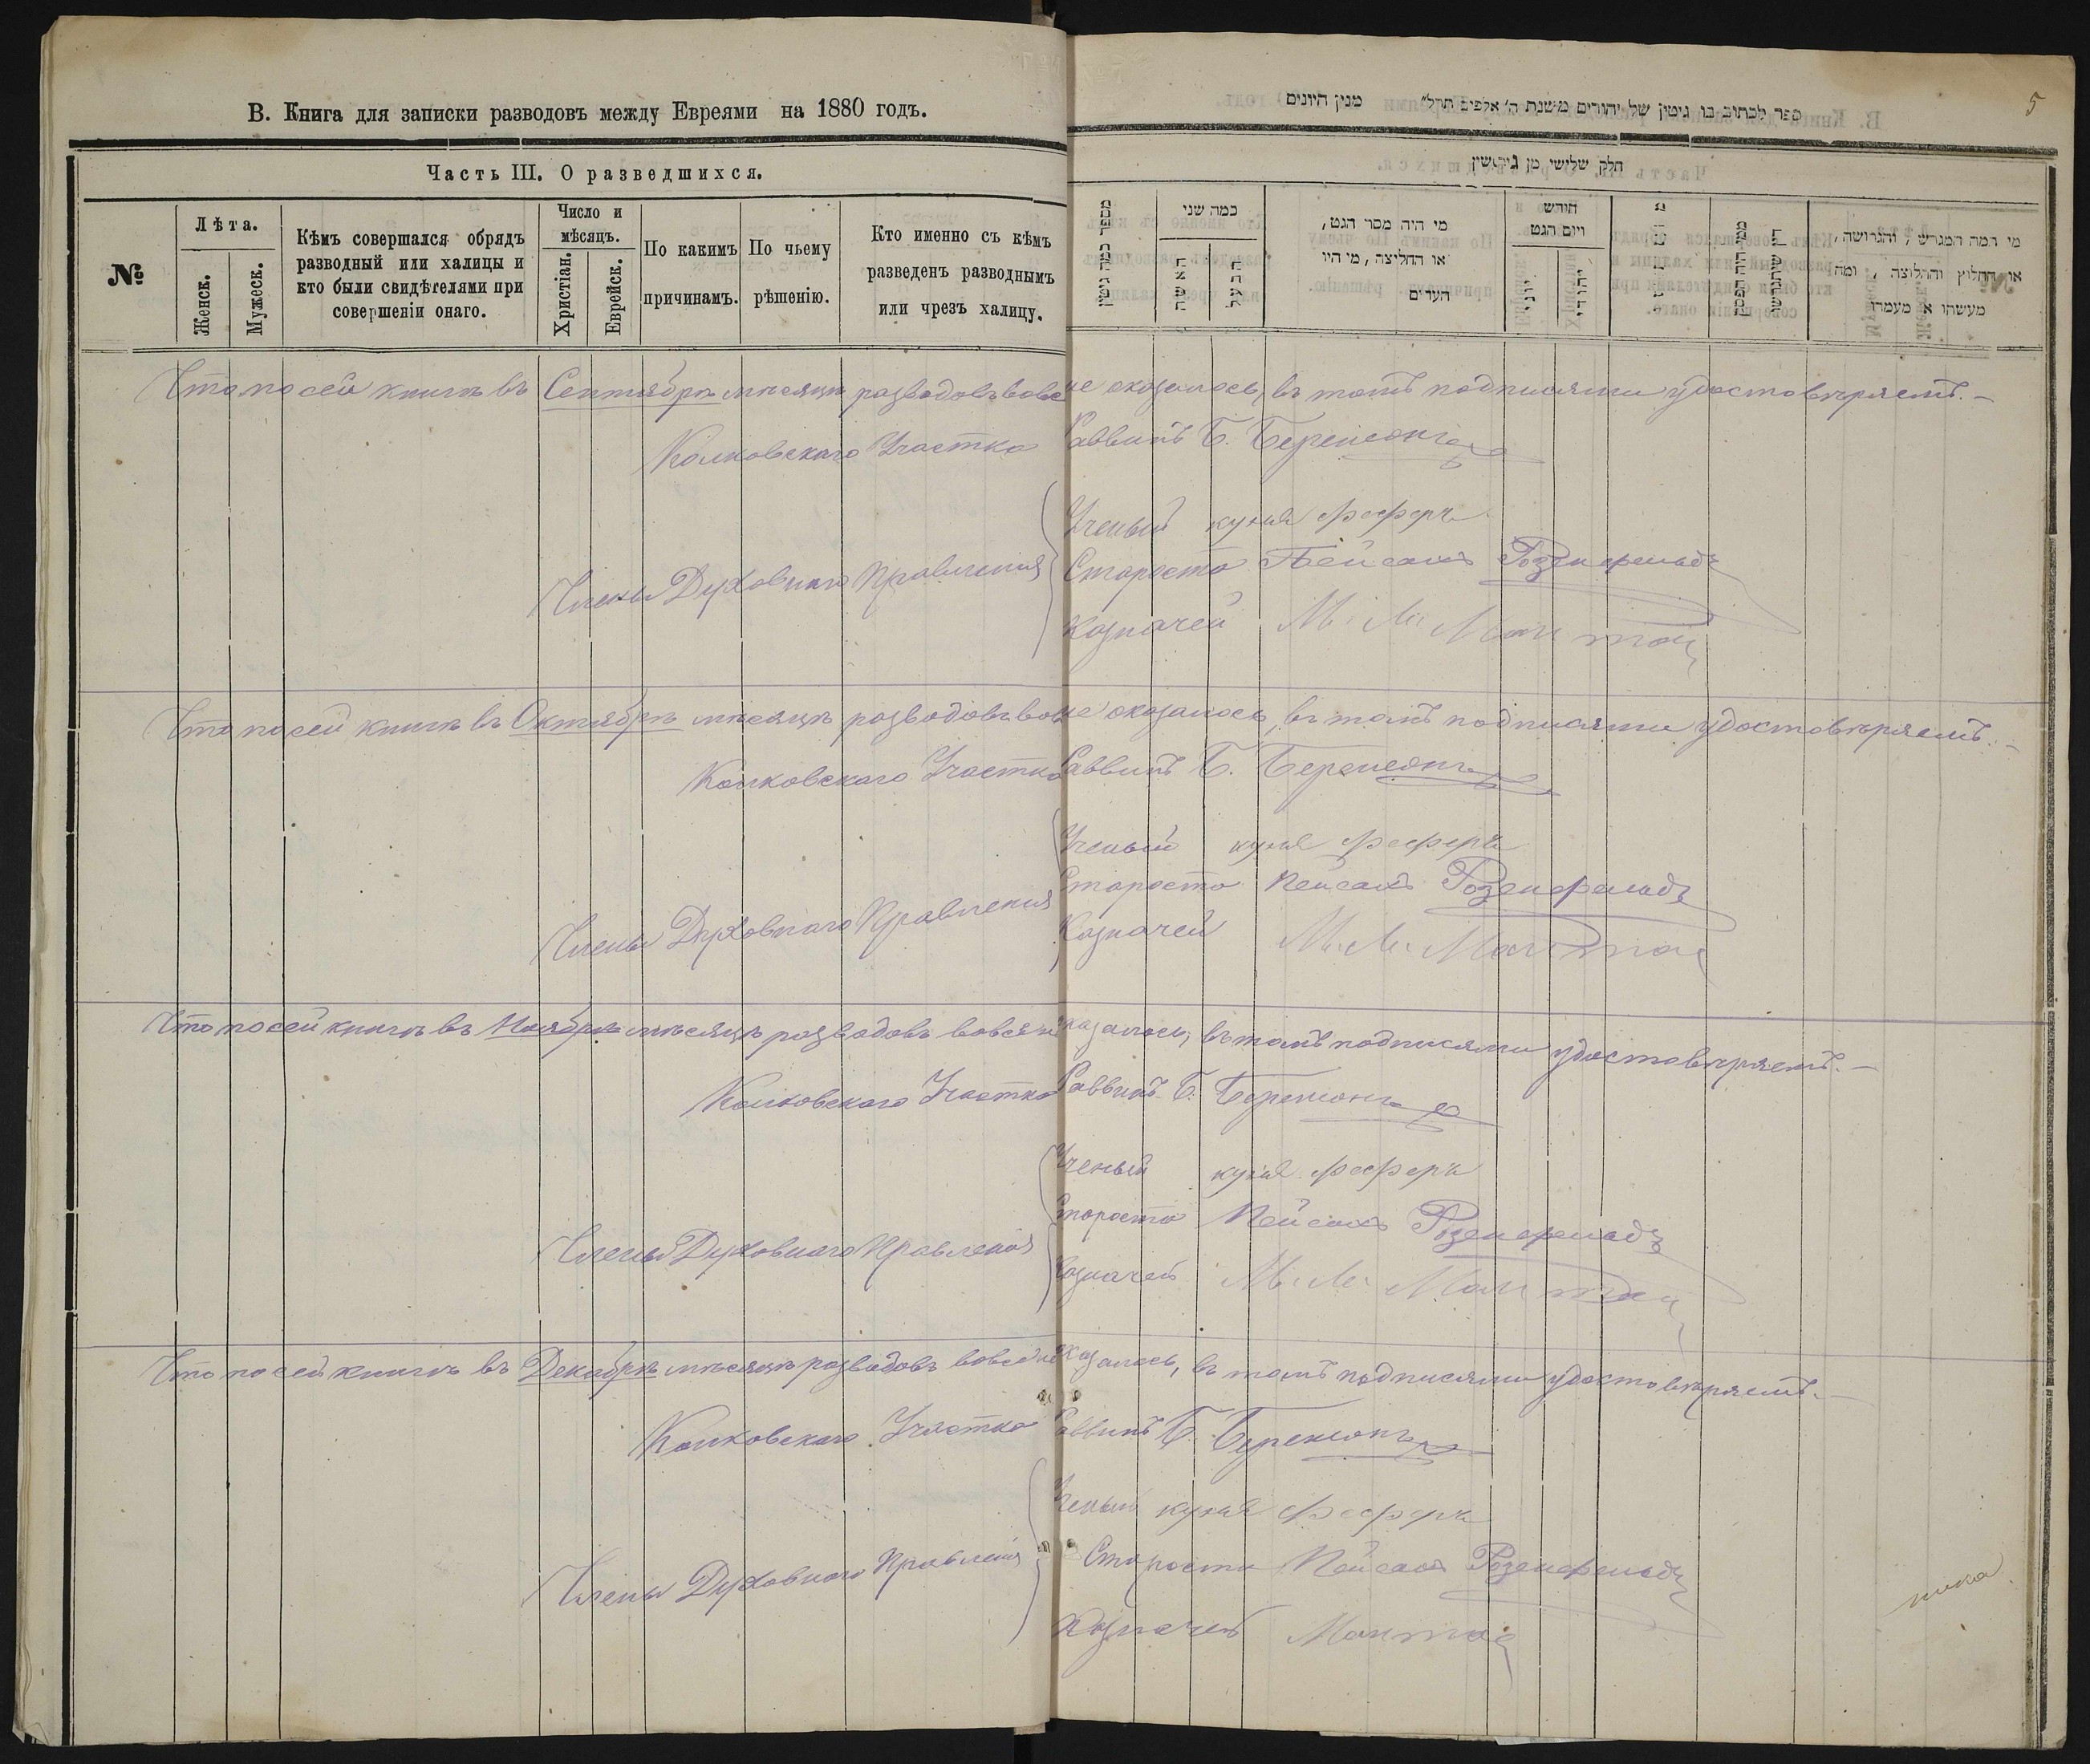 В. Книга для записки разводовъ между Евреями на 1880 годъ.
Часть III. О разведшихся.
№
Лѣта.
Женск.
Мужеск.
Кѣмъ совершался обрядъ
разводный или халицы и
кто были свидѣтелями при
совершеніи онаго.
Число и
мѣсяцъ.
Христіан.
Еврейск.
По какимъ
причинамъ.
По чьему
рѣшенію.
Кто именно съ кѣмъ
разведенъ разводнымъ
или чрезъ халицу.
5
ספר לכתוב בו גיטין של יהודים משנת ה' אלפים תר"ל מנין היונים
חלק שלישי מן גירושין
מספר כמה גיטין
כמה שני
האשה
הבעל
מי היה מסר הגט,
או החליצה, מי היו
העדים
חודש
ויום הגט
יוני
יהודי
מי המה המגרש, והגרושה,
או החלוץ והחלוצה, ומה
מעשהו א מעמדו
Что по сей книгѣ въ Сентябрѣ мѣсяцѣ разводовъ вовсе не оказалось, въ томъ подписями удостовѣряемъ. —
Колковскаго Участка Раввинъ Б. Беренсонъ
Члены Духовнаго Правленія
Ученый куна Фефер
Староста Пейсахъ Розенфельдъ
Казначей М. М.
Что по сей книгѣ въ Октябрѣ мѣсяцѣ разводовъ вовсе не оказалось, въ томъ подписями удостовѣряемъ. —
Колковскаго Участка Раввинъ Б. Беренсонъ
Члены Духовнаго Правленія
Ученый куна Фефер
Староста Пейсахъ Розенфельдъ
Казначей М. М.
Что по сей книгѣ въ Ноябрѣ мѣсяцѣ разводовъ вовсе не оказалось, въ томъ подписями удостовѣряемъ. —
Колковскаго Участка Раввинъ Б. Беренсонъ
Члены Духовнаго Правленія
Ученый куна Фефер
Староста Пейсахъ Розенфельдъ
Казначей М. М.
Что по сей книгѣ въ Декабрѣ мѣсяцѣ разводовъ вовсе не оказалось, въ томъ подписями удостовѣряемъ. —
Колковскаго Участка Раввинъ Б. Беренсонъ
Члены Духовнаго Правленія
Ученый куна Фефер
Староста Пейсахъ Розенфельдъ
Казначей